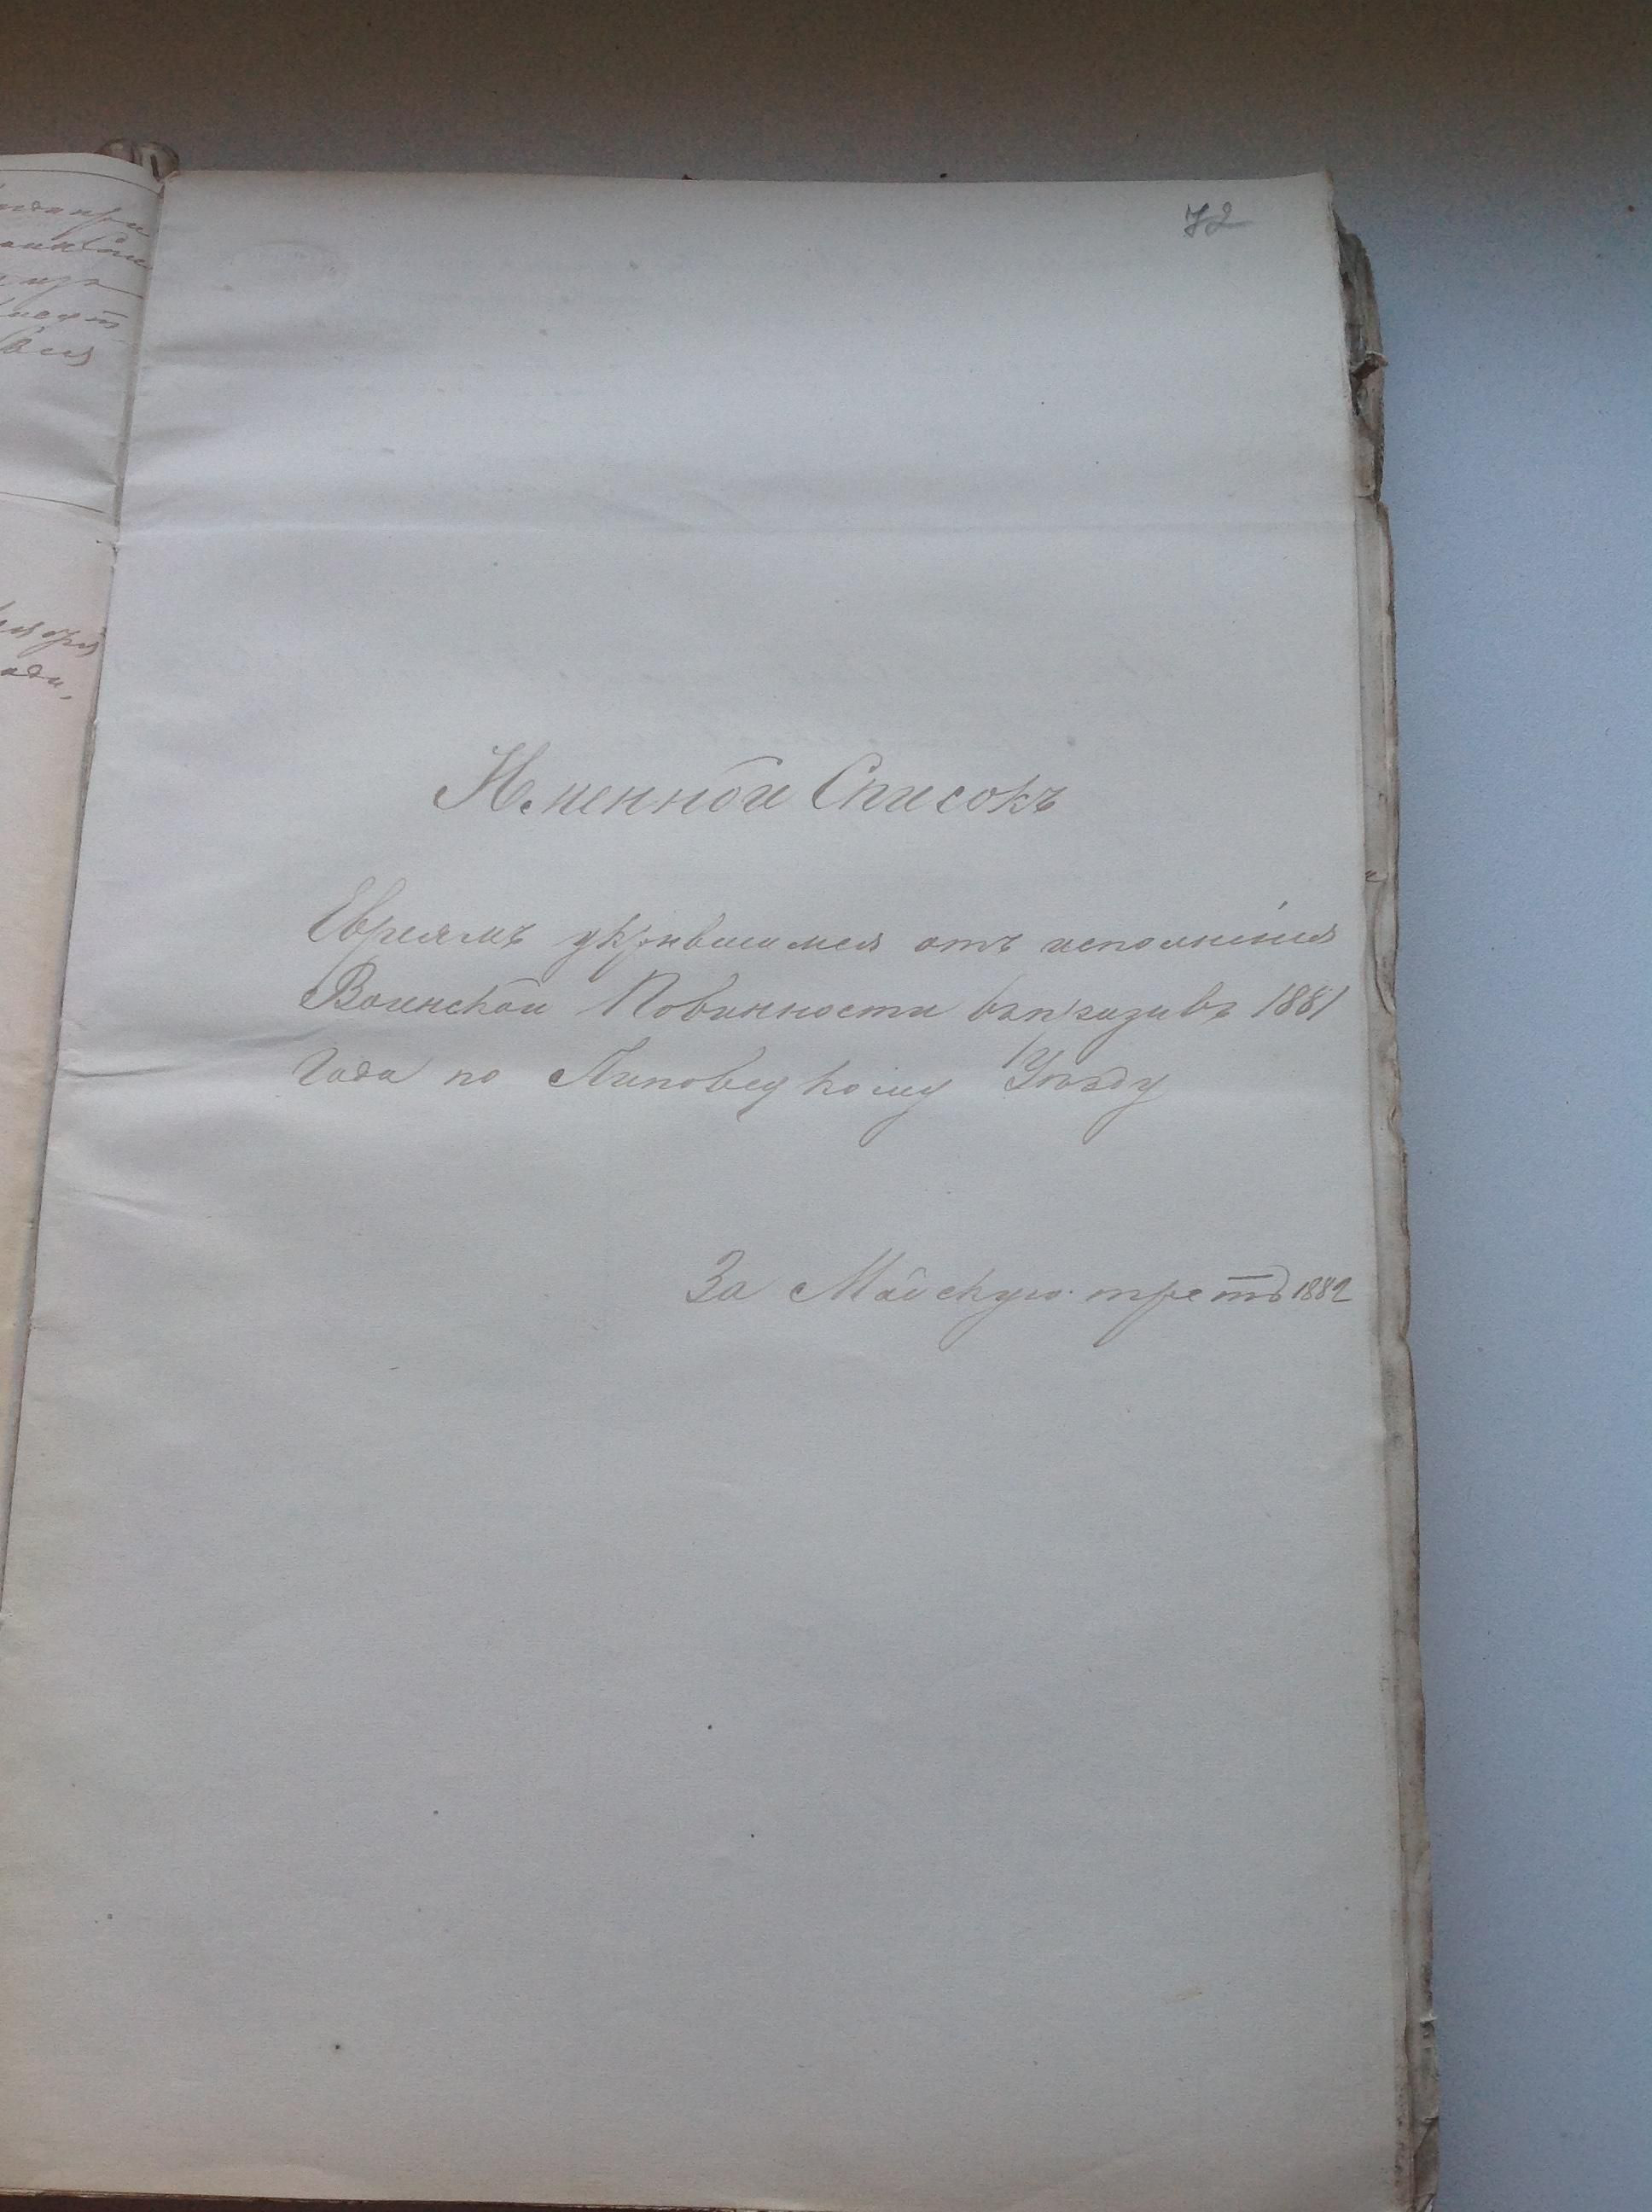 72
Именной Списокъ
Евреямъ укрывшимся отъ исполненія
Воинской Повинности въ призывъ 1881
Года по Липовецкому Уѣзду
За Майскую треть 1882